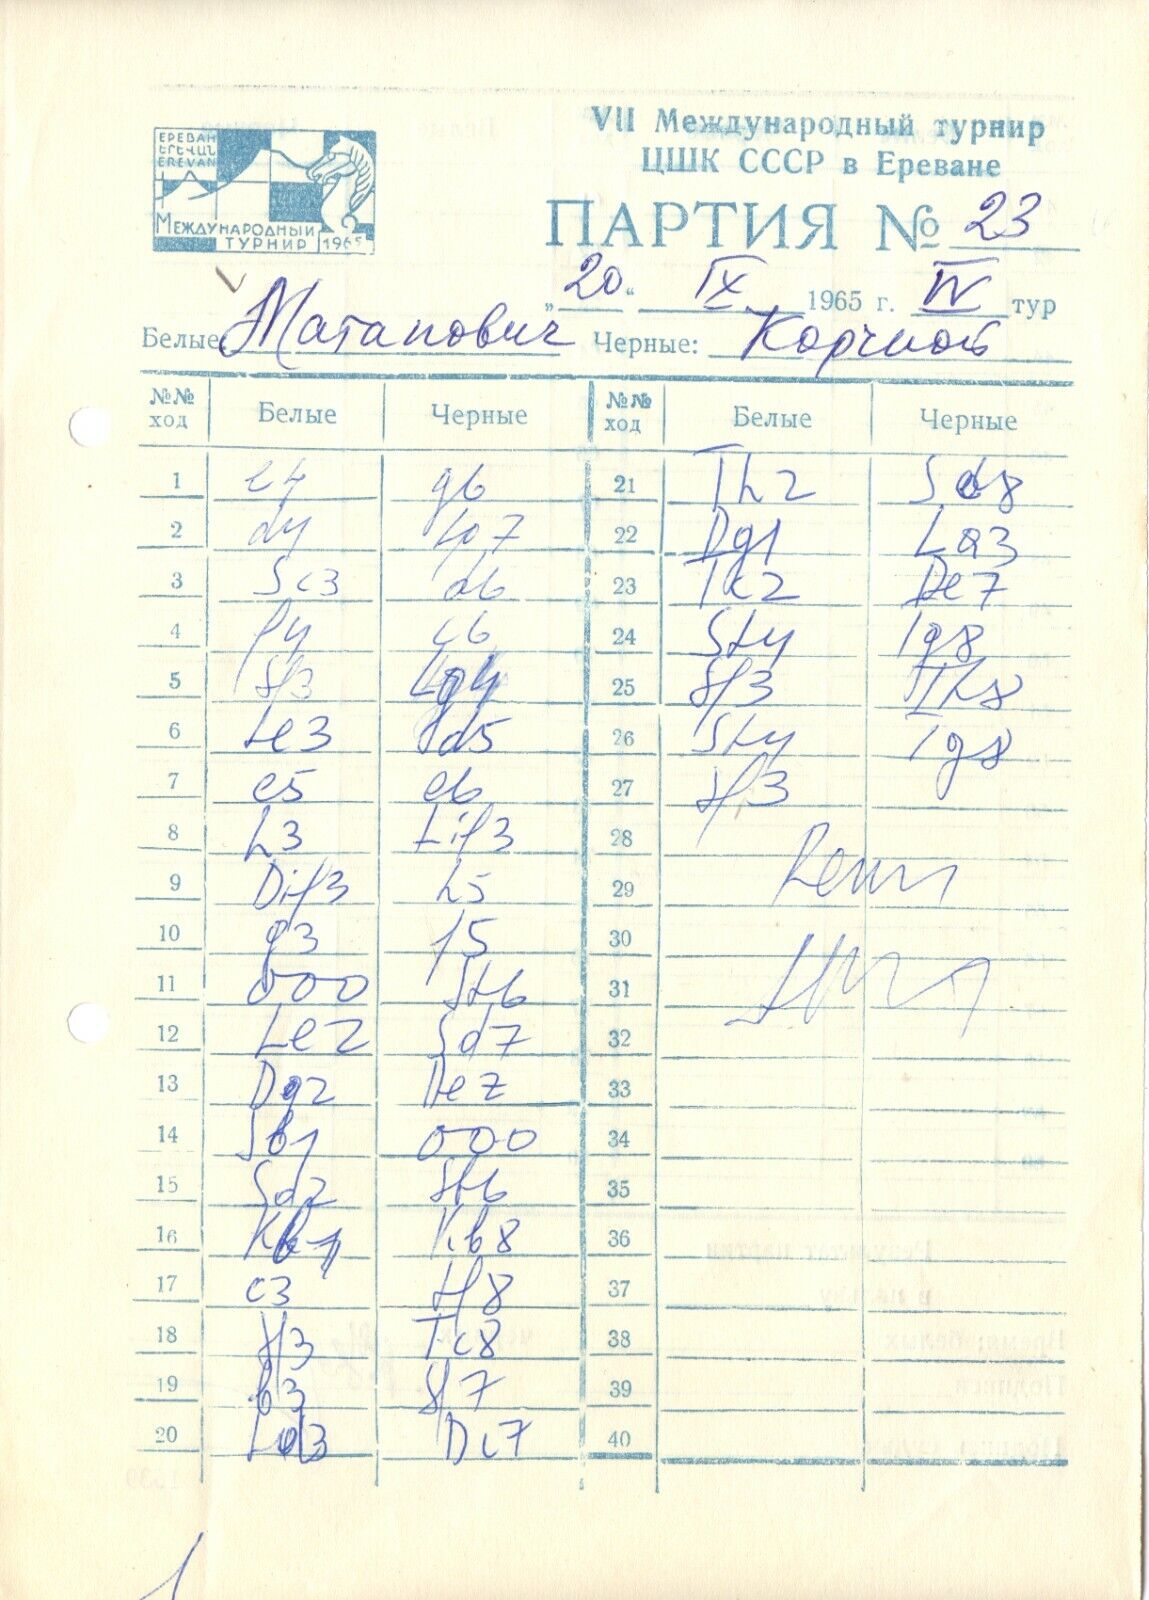 ЕРЕВАН
ԵՐԵՎԱՆ
EREVAN
МЕЖДУНАРОДНЫЙ
ТУРНИР 1965
VII Международный турнир
ЦШК СССР в Ереване
ПАРТИЯ № 23
„20“ IX 1965 г. IV тур
Белые Матанович Черные: Корчной
№№ ход Белые Черные №№ ход Белые Черные
1 e4 g6 21 Th2 Sd8
2 d4 Lg7 22 Dg1 La3
3 Sc3 d6 23 Tc2 De7
4 f4 c6 24 Sh4 Tg8
5 Sf3 Lg4 25 Sf3 Th8
6 Le3 Db6 26 Sh4 Tg8
7 e5 e6 27 Sf3
8 h3 Lif3 28
9 Dif3 h5 29 Remis
10 g3 f5 30
11 000 Sh6 31
12 Le2 Sd7 32
13 Dg2 De7 33
14 Sb1 000 34
15 Sd2 Sb6 35
16 Kb1 Kb8 36
17 c3 Lf8 37
18 Sf3 Tc8 38
19 b3 Sf7 39
20 Ld3 Dc7 40